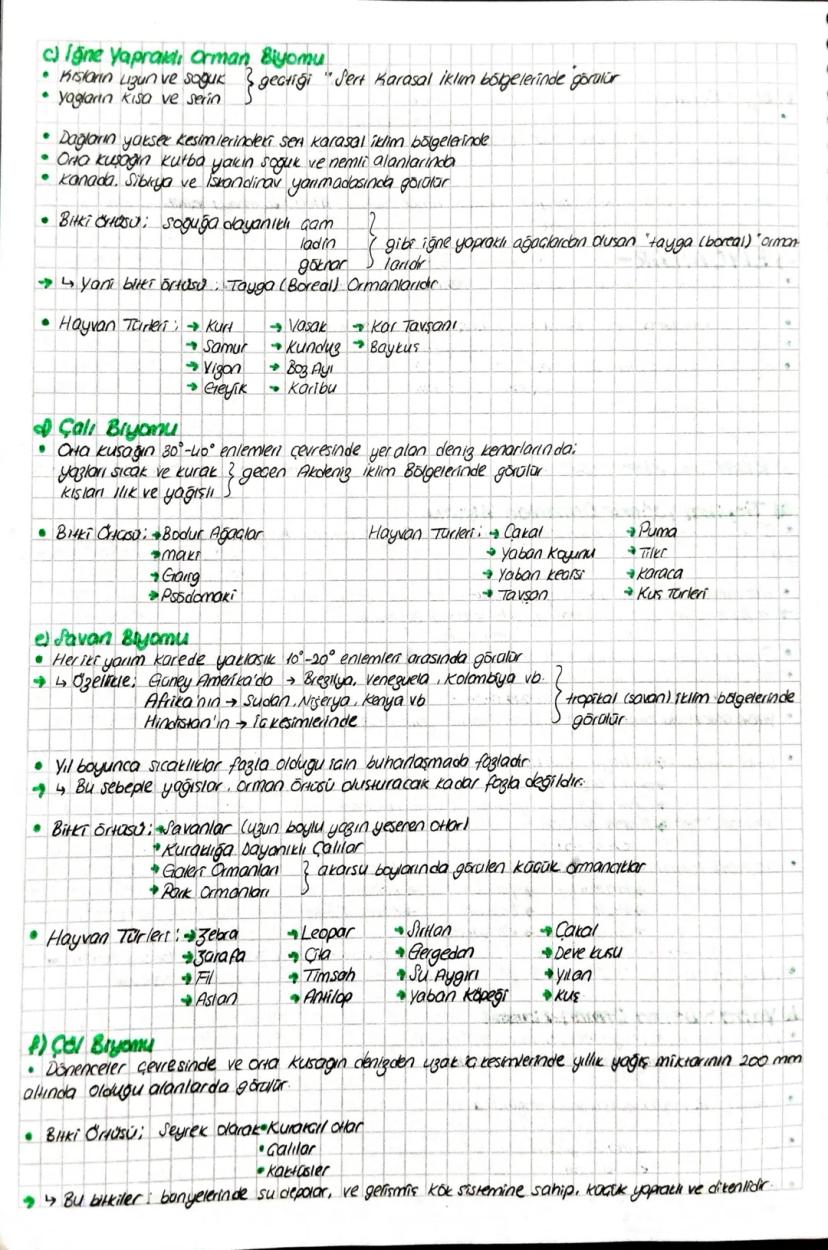 c) İğne Yapraklı Orman Biyomu
• Kışların uzun ve soğuk } geçtiği "Sert Karasal iklim bölgelerinde" görülür
• Yazların kısa ve serin
• Dağların yüksek kesimlerindeki sert karasal iklim bölgelerinde
• Orta kuşağın kutba yakın soğuk ve nemli alanlarında
• Kanada, Sibirya ve İskandinav yarımadasında görülür
• Bitki Örtüsü; soğuğa dayanıklı çam
ladin } gibi iğne yapraklı ağaçlardan oluşan "tayga (boreal)" orman
göknar larıdır
→ ↳ Yani bitki örtüsü; Tayga (Boreal) Ormanlarıdır
• Hayvan Türleri; → Kurt → Vaşak → Kar Tavşanı
→ Samur → Kunduz → Baykuş
→ Vizon → Boz Ayı
→ Geyik → Karibu
d) Çalı Biyomu
• Orta kuşağın 30°-40° enlemleri çevresinde yer alan deniz kenarlarında;
yazları sıcak ve kurak } geçen Akdeniz iklim Bölgelerinde görülür
kışları ılık ve yağışlı
• Bitki Örtüsü; → Bodur Ağaçlar Hayvan Türleri; → Çakal → Puma
→ maki → Yaban Koyunu → Tilki
→ Garig → Yaban keçisi → Karaca
→ Psödomaki → Tavşan → Kuş Türleri
e) Savan Biyomu
• Her iki yarım kürede yaklaşık 10°-20° enlemleri arasında görülür
→ ↳ Özellikle; Güney Amerika'da → Brezilya, Venezuela, Kolombiya vb.
Afrika'nın → Sudan, Nijerya, Kenya vb } tropikal (savan) iklim bölgelerinde
Hindistan'ın → İç kesimlerinde görülür
• Yıl boyunca sıcaklıklar fazla olduğu için buharlaşmada fazladır
→ ↳ Bu sebeple yağışlar, orman örtüsü oluşturacak kadar fazla değildir.
• Bitki örtüsü; → Savanlar (uzun boylu yazın yeşeren otlar)
→ Kuraklığa Dayanıklı Çalılar
→ Galeri Ormanları } akarsu boylarında görülen küçük ormancıklar
→ Park Ormanları
• Hayvan Türleri; → Zebra → Leopar → Sırtlan → Çakal
→ Zürafa → Çita → Gergedan → Deve kuşu
→ Fil → Timsah → Su Aygırı → Yılan
→ Aslan → Antilop → Yaban Köpeği → Kuş
f) Çöl Biyomu
• Dönenceler çevresinde ve orta kuşağın denizden uzak iç kesimlerinde yıllık yağış miktarının 200 mm
altında olduğu alanlarda görülür.
• Bitki Örtüsü; Seyrek olarak • Kurakçıl otlar
• Çalılar
• Kaktüsler
→ ↳ Bu bitkiler; bünyelerinde su depolar, ve gelişmiş kök sistemine sahip, küçük yapraklı ve dikenlidir.